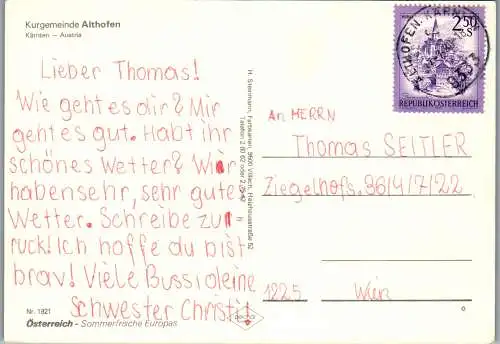 Kurgemeinde Althofen
Kärnten – Austria
Lieber Thomas!
Wie geht es dir? Mir
geht es gut. Habt ihr
schönes Wetter? Wir
haben sehr, sehr gutes
Wetter. Schreibe zu
ruck! Ich hoffe du bist
brav! Viele Bussi deine
Schwester Christi!
Nr. 1821
Österreich - Sommerfrische Europas
2.50
S
REPUBLIK ÖSTERREICH
ALTHOFEN, KÄRNTEN
9333
An HERRN
Thomas SEITLER
Ziegelhofs. 36/4/7/22
1225 Wien